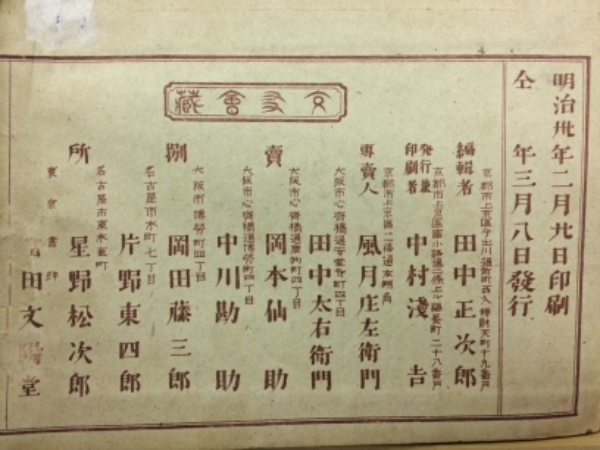 明治卅年二月廿日印刷
仝 年三月八日發行
京都市上京區今出川通新町西入辨財天町十九番戸
編輯者 田中正次郎
京都市上京區富小路通三條上ル福長町二十八番戸
發行兼印刷者 中村淺吉
京都市上京區二條通
專賣人 風月庄左衛門
文友會藏
大阪市心齋橋通安堂寺町四丁目
田中太右衛門
大阪市心齋橋通 町四丁目
賣 岡本仙助
大阪市心齋橋通博勞町四丁目
中川勘助
大阪市博勞町四丁目
捌 岡田藤三郎
名古屋市本町七丁目
片野東四郎
名古屋市東本重町
所 星野松次郎
東京書肆
田文陽堂